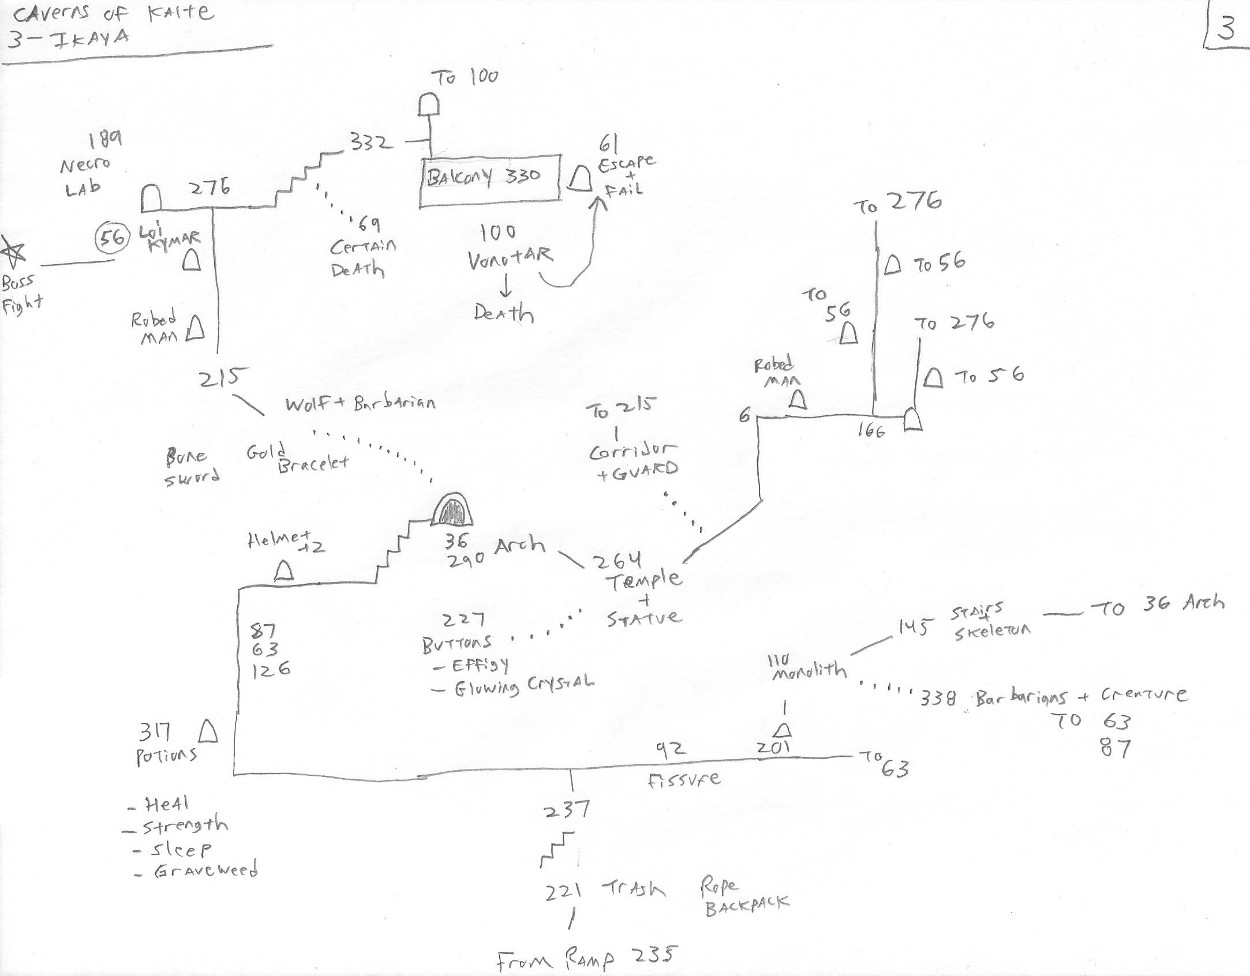 CAVERNS OF KALTE
3 - IKAYA
3
To 100
189
Necro
LAB
276
332
BALCONY 330
61
ESCAPE
+
FAIL
56
Loi
KYMAR
Boss
Fight
69
CERTAIN
DEATH
100
VONOTAR
DEATH
Robed
MAN
215
To 276
To 56
To
56
To 276
To 56
Robed
MAN
6
166
Wolf + Barbarian
Bone
Sword
Gold
Bracelet
To 215
Corridor
+ GUARD
Helmet
+2
36
290 Arch
264
Temple
+
STATUE
87
63
126
227
BUTTONS
- EFFIGY
- Glowing CRYSTAL
145 STAIRS
+
SKELETON
TO 36 Arch
110
Monolith
338 Barbarians + Creature
TO 63
87
317
POTIONS
92
FISSURE
201
To
63
- Heal
- Strength
- Sleep
- Graveweed
237
221 TRASH
Rope
BACKPACK
From RAMP 235